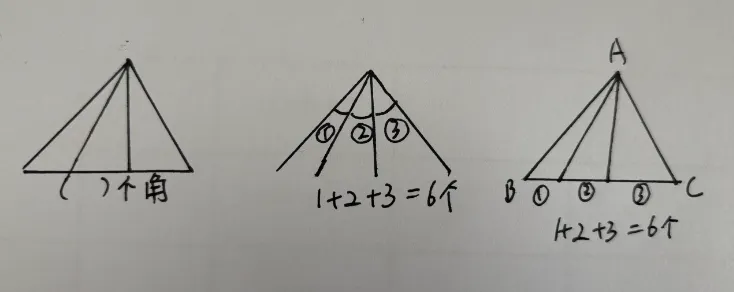 ( )个角
① ② ③
1+2+3=6个
A
B ① ② ③ C
1+2+3=6个